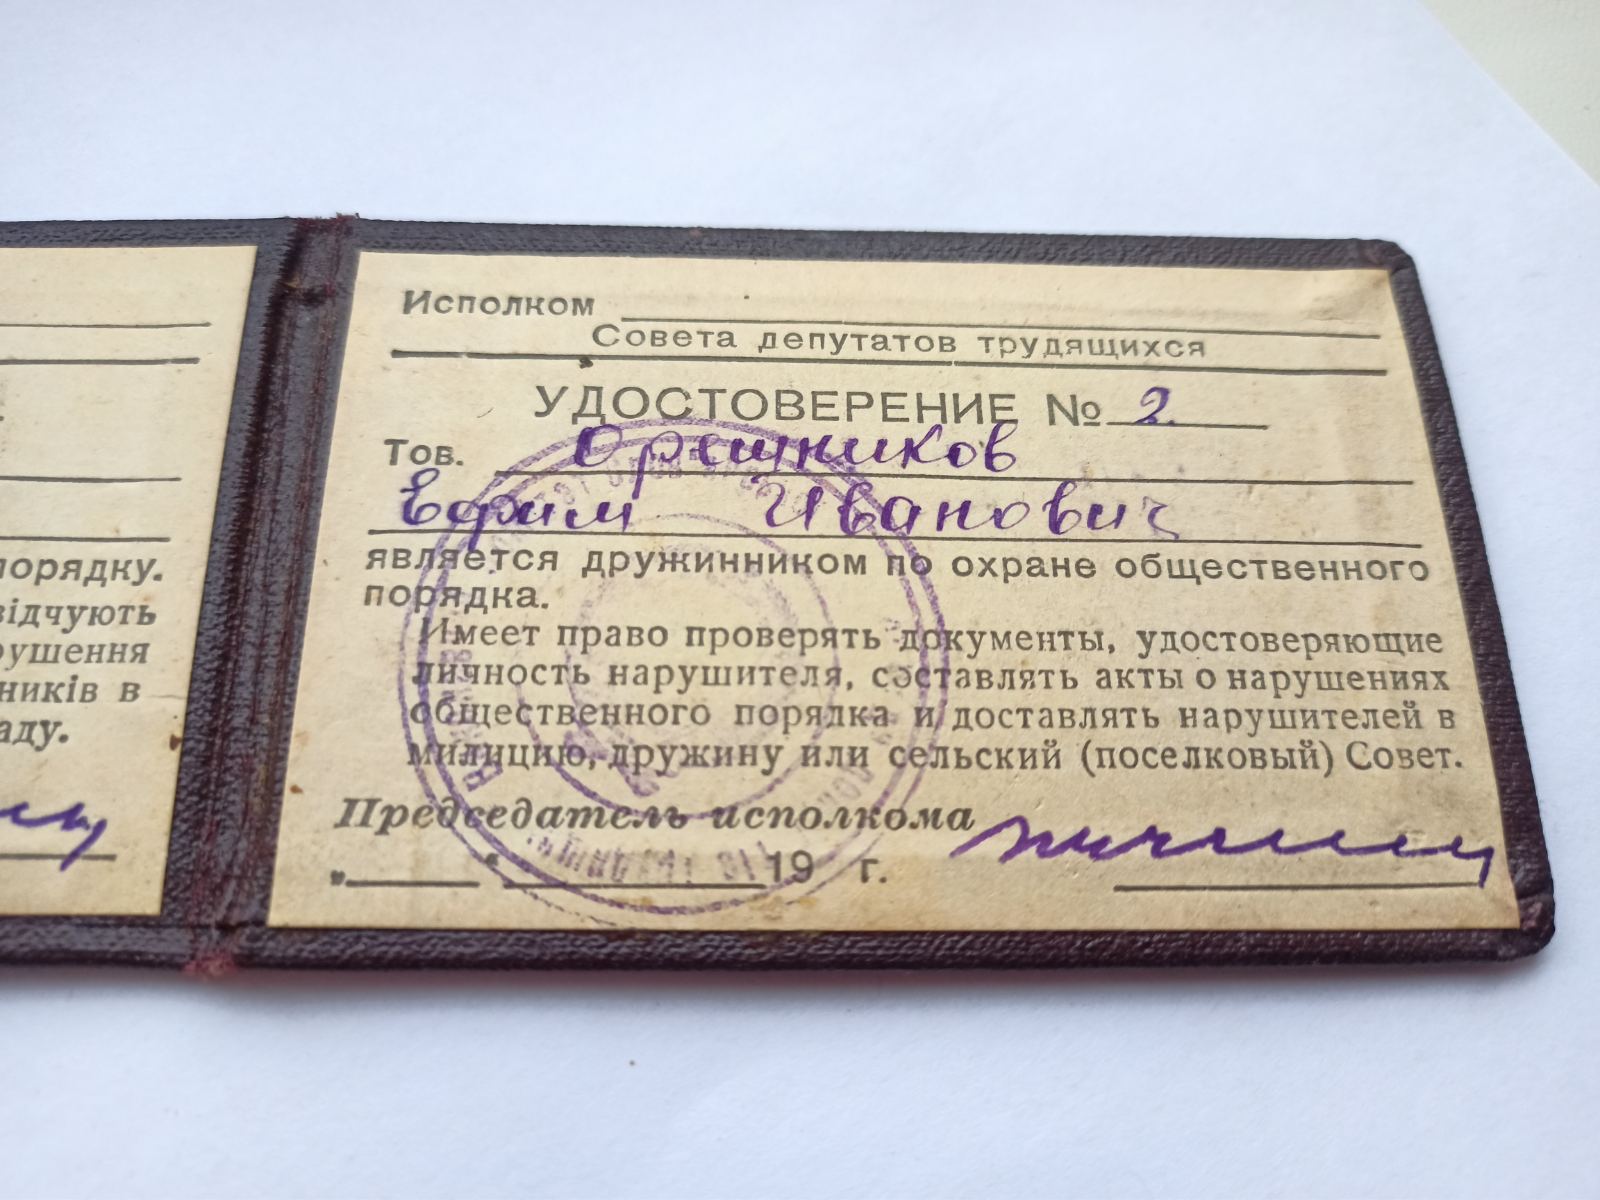 порядку.
відчують
рушення
ників в
аду.
Исполком
Совета депутатов трудящихся
УДОСТОВЕРЕНИЕ № 2.
Тов. Орешников
Ефим Иванович
является дружинником по охране общественного
порядка.
Имеет право проверять документы, удостоверяющие
личность нарушителя, составлять акты о нарушениях
общественного порядка и доставлять нарушителей в
милицию, дружину или сельский (поселковый) Совет.
Председатель исполкома
„ “ 19 г.